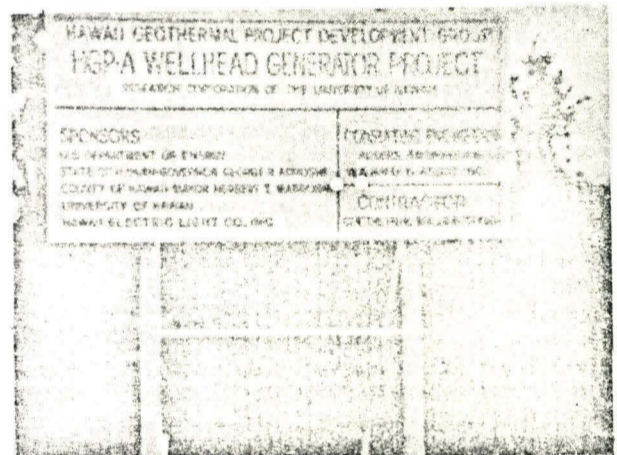 HAWAII GEOTHERMAL PROJECT DEVELOPMENT GROUP
HGP-A WELLHEAD GENERATOR PROJECT
RESEARCH CORPORATION OF THE UNIVERSITY OF HAWAII
SPONSORS
U.S. DEPARTMENT OF ENERGY
STATE OF HAWAII-GOVERNOR GEORGE R. ARIYOSHI
COUNTY OF HAWAII-MAYOR HERBERT T. MATAYOSHI
UNIVERSITY OF HAWAII
HAWAII ELECTRIC LIGHT CO., INC
CONSULTING ENGINEERS
CONTRACTOR